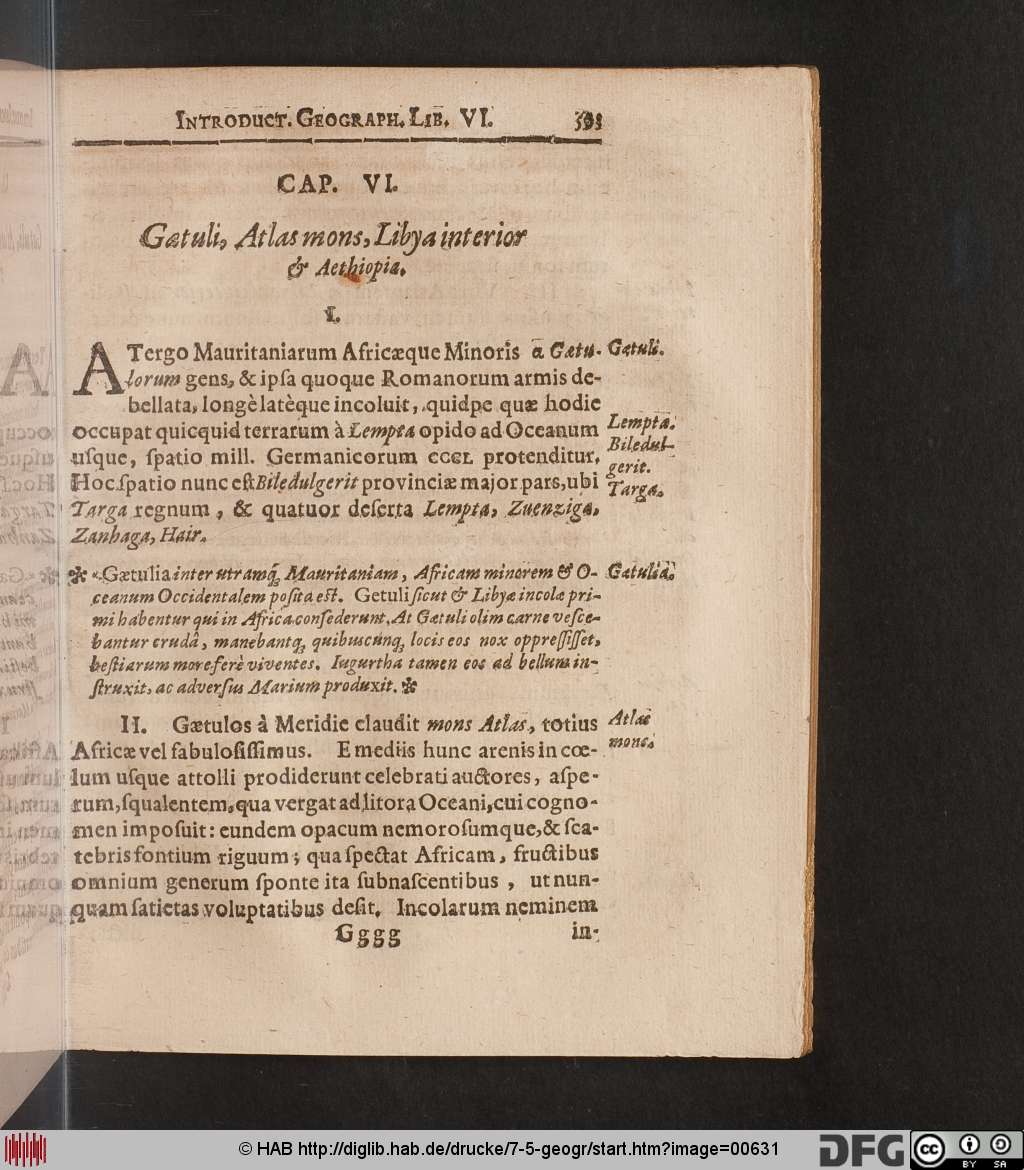 INTRODUCT. GEOGRAPH. LIB. VI.
CAP. VI.
Gætuli, Atlas mons, Libya interior
& Aethiopia.
I.
A Tergo Mauritaniarum Africæque Minoris a Gætu- Gætuli.
lorum gens, & ipſa quoque Romanorum armis de-
bellata, longè latèque incoluit, quidpe quæ hodie
occupat quicquid terrarum à Lempta opido ad Oceanum Lempta.
uſque, ſpatio mill. Germanicorum CCCL protenditur. Biledul-
gerit.
Hoc ſpatio nunc eſt Biledulgerit provinciæ major pars, ubi Targa.
Targa regnum, & quatuor deſerta Lempta, Zuenziga,
Zanhaga, Hair.
✻ „Gætulia inter utramq; Mauritaniam, Africam minorem & O- Gætulia.
ceanum Occidentalem poſita eſt. Getuli ſicut & Libyæ incolæ pri-
mi habentur qui in Africa conſederunt. At Gætuli olim carne veſce-
bantur crudâ, manebantq; quibuscunq; locis eos nox oppreſſiſſet,
beſtiarum more ferè viventes. Iugurtha tamen eos ad bellum in-
ſtruxit, ac adverſus Marium produxit. ✻
II. Gætulos à Meridie claudit mons Atlas, totius Atlas
Africæ vel fabuloſiſſimus. E mediis hunc arenis in cœ- mons.
lum uſque attolli prodiderunt celebrati auctores, aſpe-
rum, ſqualentem, qua vergat ad litora Oceani, cui cogno-
men impoſuit: eundem opacum nemoroſumque, & ſca-
tebris fontium riguum; qua ſpectat Africam, fructibus
omnium generum ſponte ita ſubnaſcentibus, ut nun-
quam ſatietas voluptatibus deſit. Incolarum neminem
Gggg in-
© HAB http://diglib.hab.de/drucke/7-5-geogr/start.htm?image=00631
DFG
cc BY SA